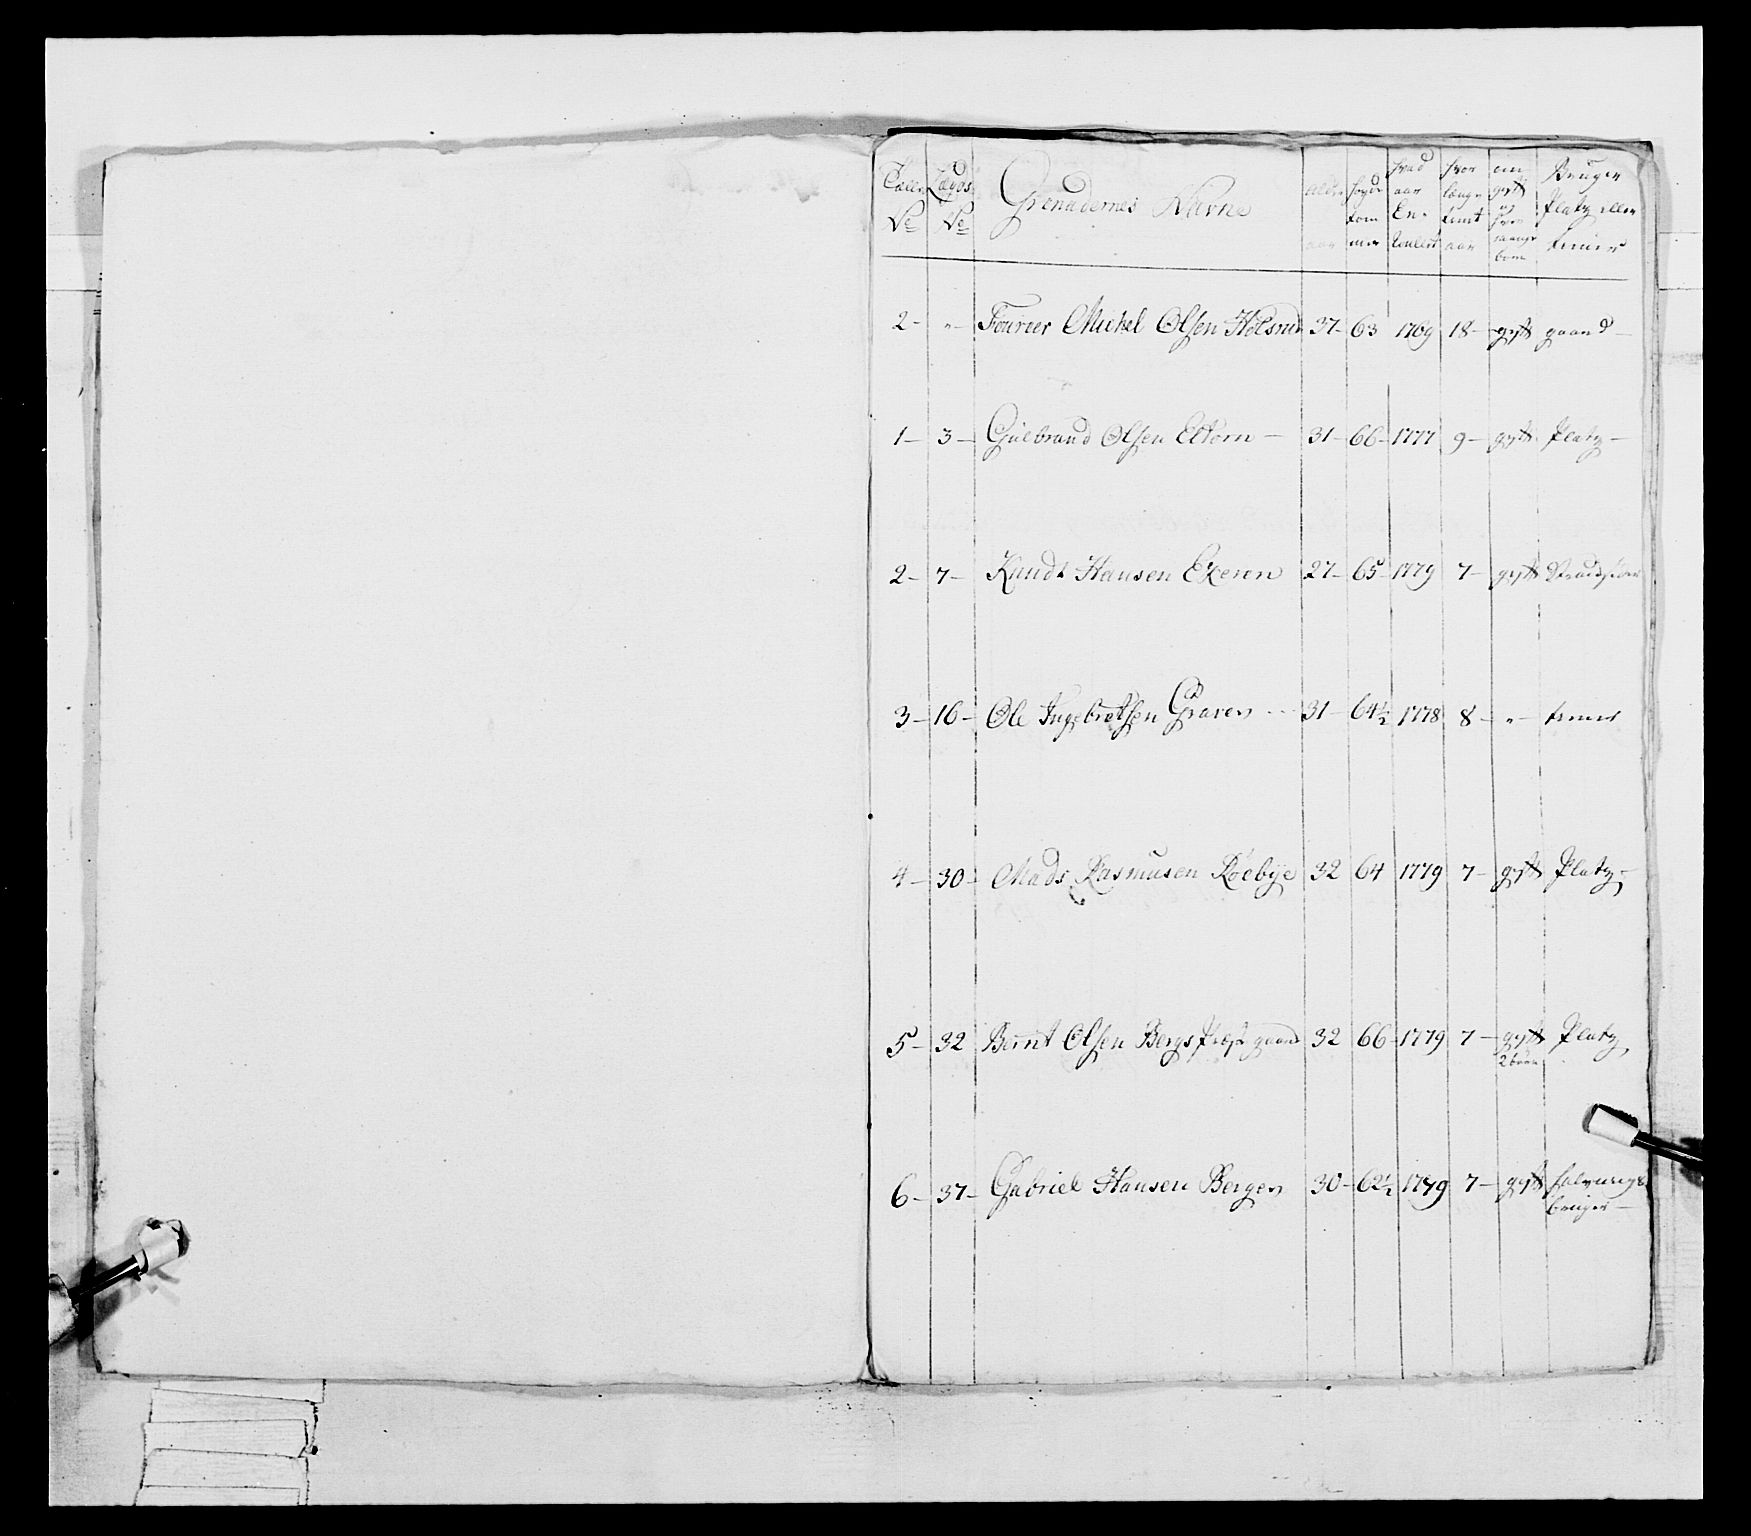 Tall No | Lægds No | Grenadernes Navne | alder aar | høyde tom mer | hvad aar En- roulert | hvor længe tient aar | om gyft og hvor mange børn | Bruger Platz eller tiener
2 – | „ – | Fourier Michel Olsen | 37 – | 63 | 1769 | 18 – | gyft | gaard –
1 – | 3 – | Gulbrand Olsen Eltorn – | 31 – | 66 – | 1777 | 9 – | gyft | Platz –
2 – | 7 – | Knudt Hansen Ekeren | 27 – | 65 – | 1779 | 7 – | gyft
3 – | 16 – | Ole Ingebretsen Graver | 31 – | 64½ | 1778 | 8 – | „ – | tiener
4 – | 30 – | Mads Rasmusen Roebye | 32 | 64 | 1779 | 7 – | gyft | Platz –
5 – | 32 | Bernt Olsen Bergs Præste gaard | 32 | 66 – | 1779 | 7 – | gyft | Platz
2 børn
6 – | 37 – | Gabriel Hansen Berger | 30 – | 62½ | 1779 | 7 – | gyft
bruger –